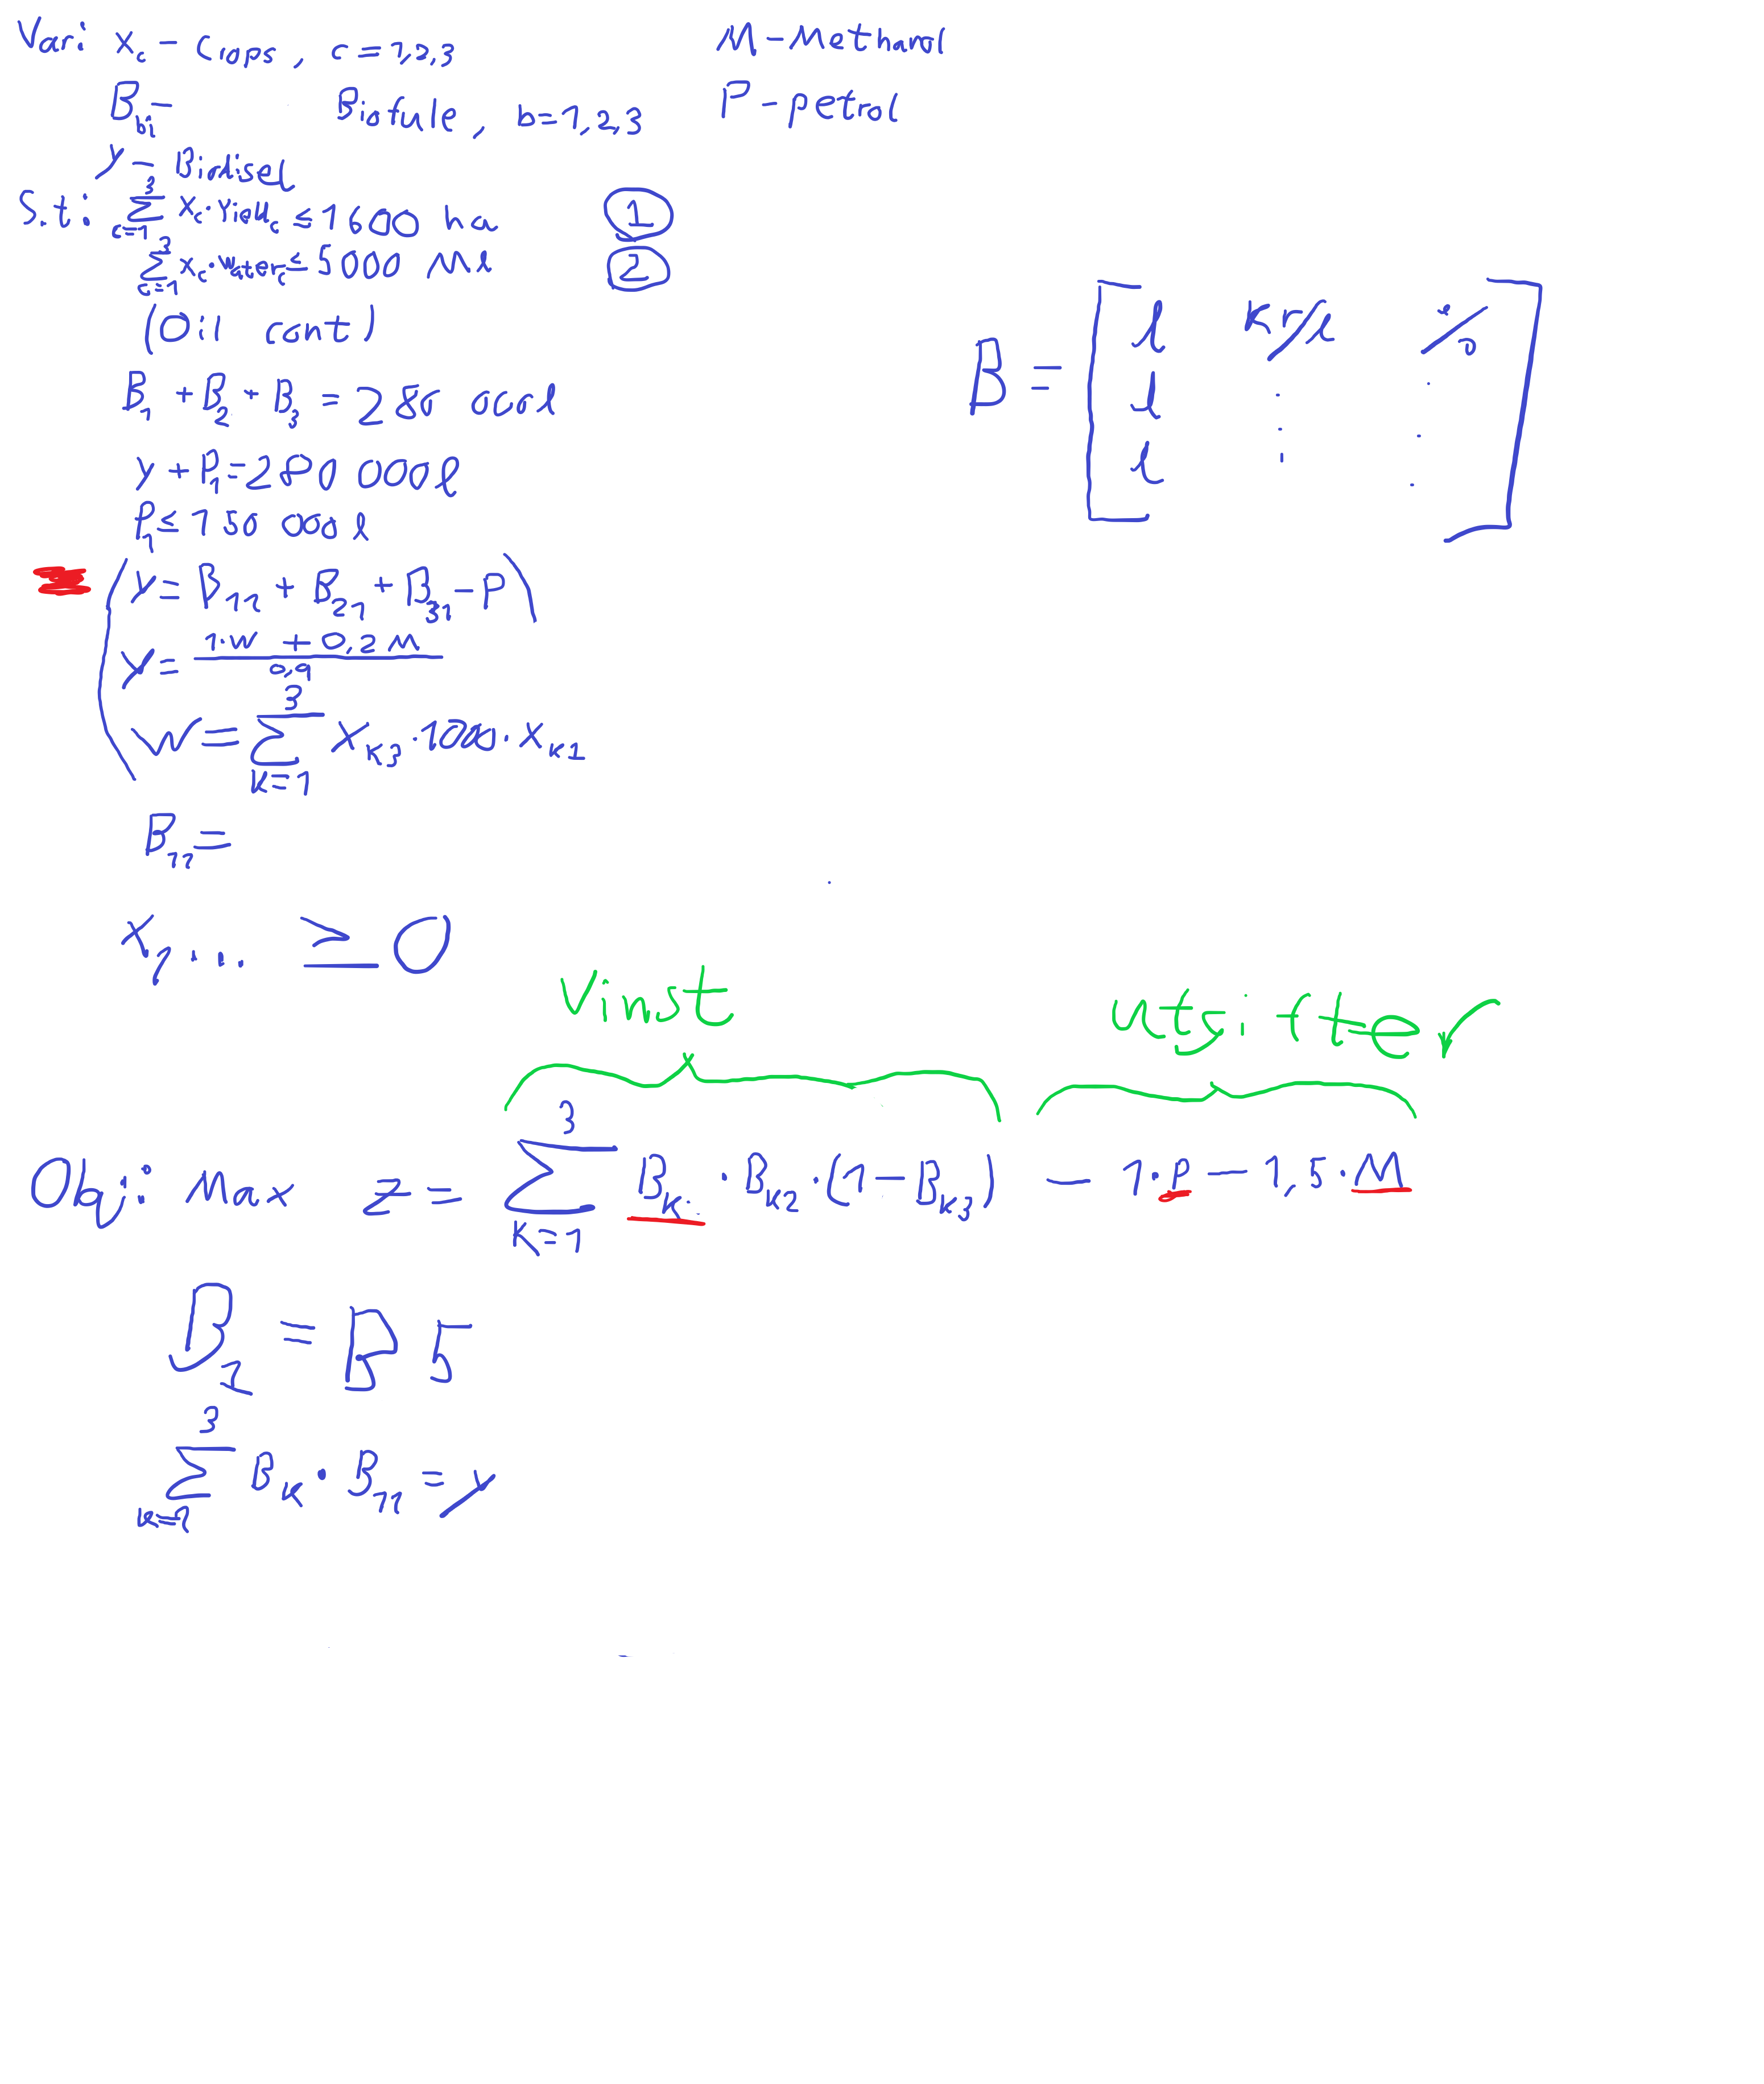 Var: x_c - Crops, c = 1,2,3
M - Methanol
B_bi - Biofule, b=1,2,3
P - petrol
y - Birdisel
S.t: ∑_{c=1}^{3} x_c · Yield_c ≤ 1600 ha ①
∑_{c=1}^{3} x_c · Water_c ≤ 5000 Ml ②
(Oil cont)
B_1 + B_2 + B_3 = 280 000 l
y + P_1 = 280 000 l
P_1 ≤ 150 000 l
y = B_11 + B_21 + B_31 - P)
y = (1·W + 0,2M) / 0,9
W = ∑_{k=1}^{3} x_k3 · 1000 · x_k1
B_11 =
x_1 ... ≥ 0
B = [ l kr/l %
l . .
l . . ]
Vinst
utgifter
Obj: Max z = ∑_{k=1}^{3} B_k · B_k2 · (1 - B_k3) - 1·P - 1,5·M
B_1 = B 5
∑_{k=1}^{3} B_k · B_11 = y